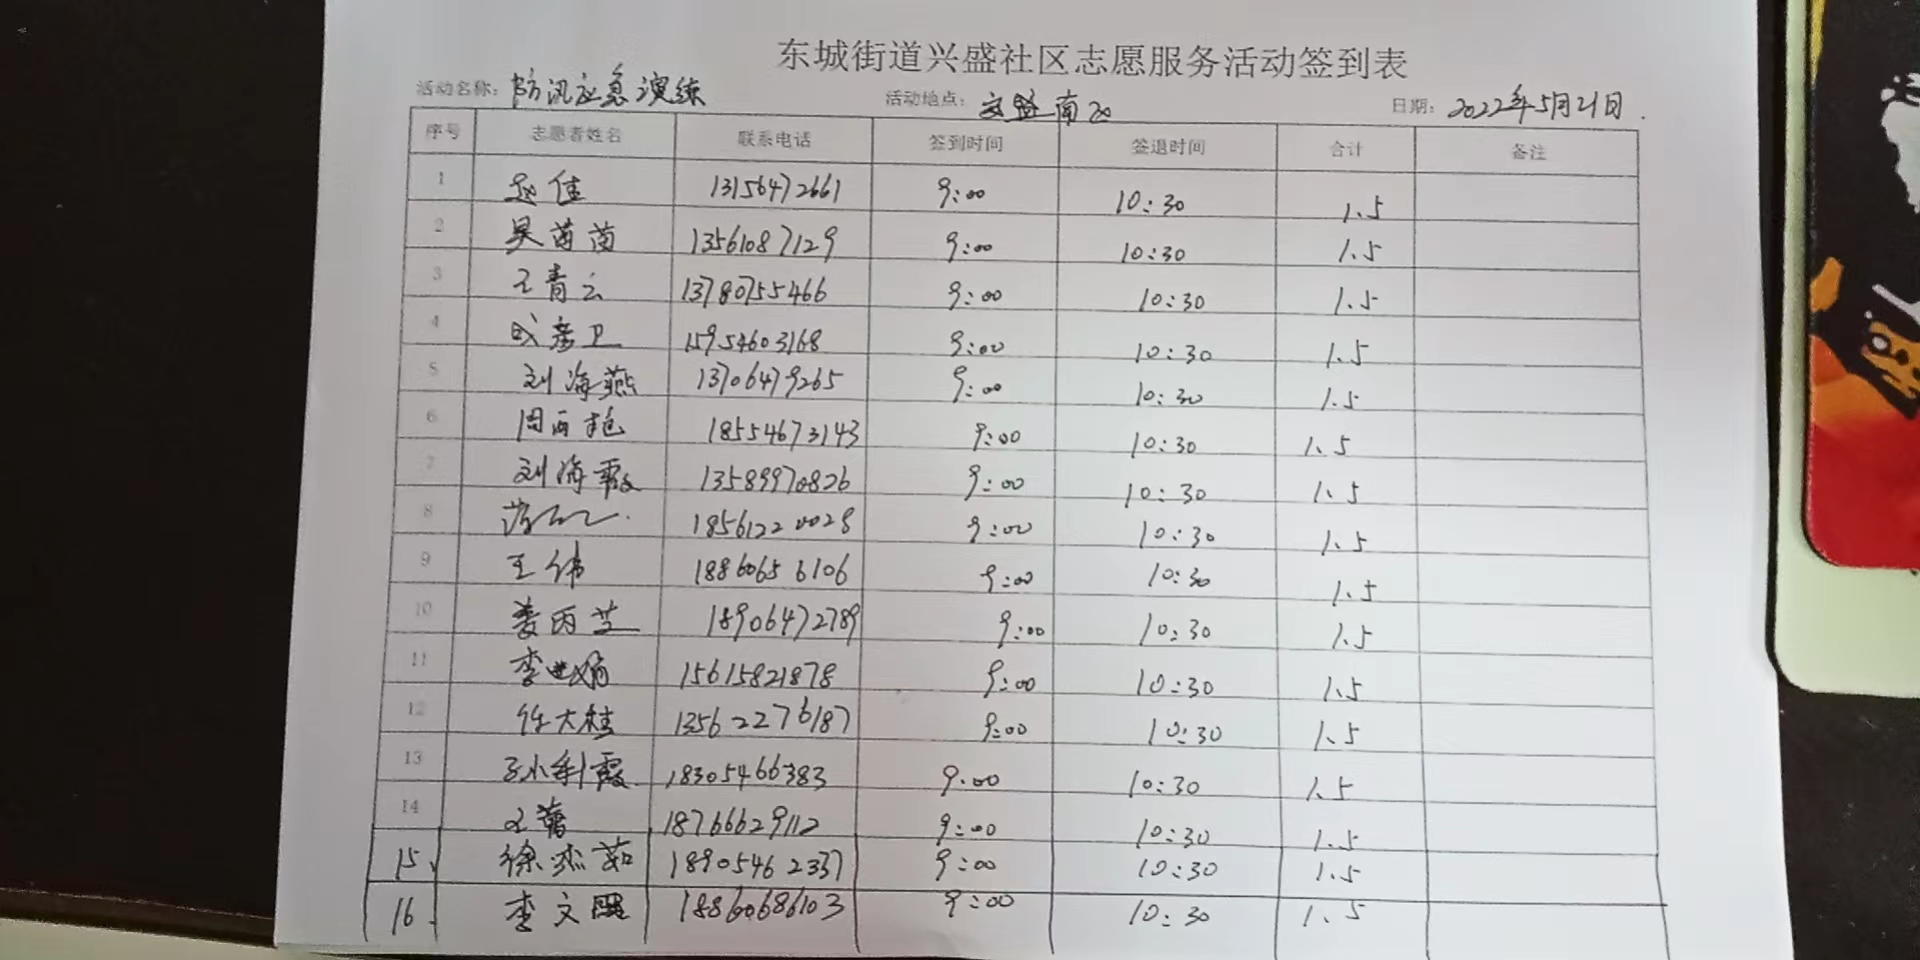 东城街道兴盛社区志愿服务活动签到表
活动名称: 防汛应急演练 活动地点: 文盛南区 日期: 2022年5月21日.
序号 志愿者姓名 联系电话 签到时间 签退时间 合计 备注
1 赵佳 13156472661 9:00 10:30 1.5
2 吴茵茵 13561087129 9:00 10:30 1.5
3 王青云 13780755466 9:00 10:30 1.5
4 成彦卫 15954603168 9:00 10:30 1.5
5 刘海燕 13706479265 9:00 10:30 1.5
6 周西艳 18554673143 9:00 10:30 1.5
7 刘海霞 13589970826 9:00 10:30 1.5
8 18561220028 9:00 10:30 1.5
9 王伟 18860656106 9:00 10:30 1.5
10 姜丙芝 18906472789 9:00 10:30 1.5
11 李世娟 15615821878 9:00 10:30 1.5
12 任大桂 13562276187 9:00 10:30 1.5
13 孙利霞 18305466383 9:00 10:30 1.5
14 18766629112 9:00 10:30 1.5
15. 徐杰茹 18905462337 9:00 10:30 1.5
16. 李文 18860686103 9:00 10:30 1.5